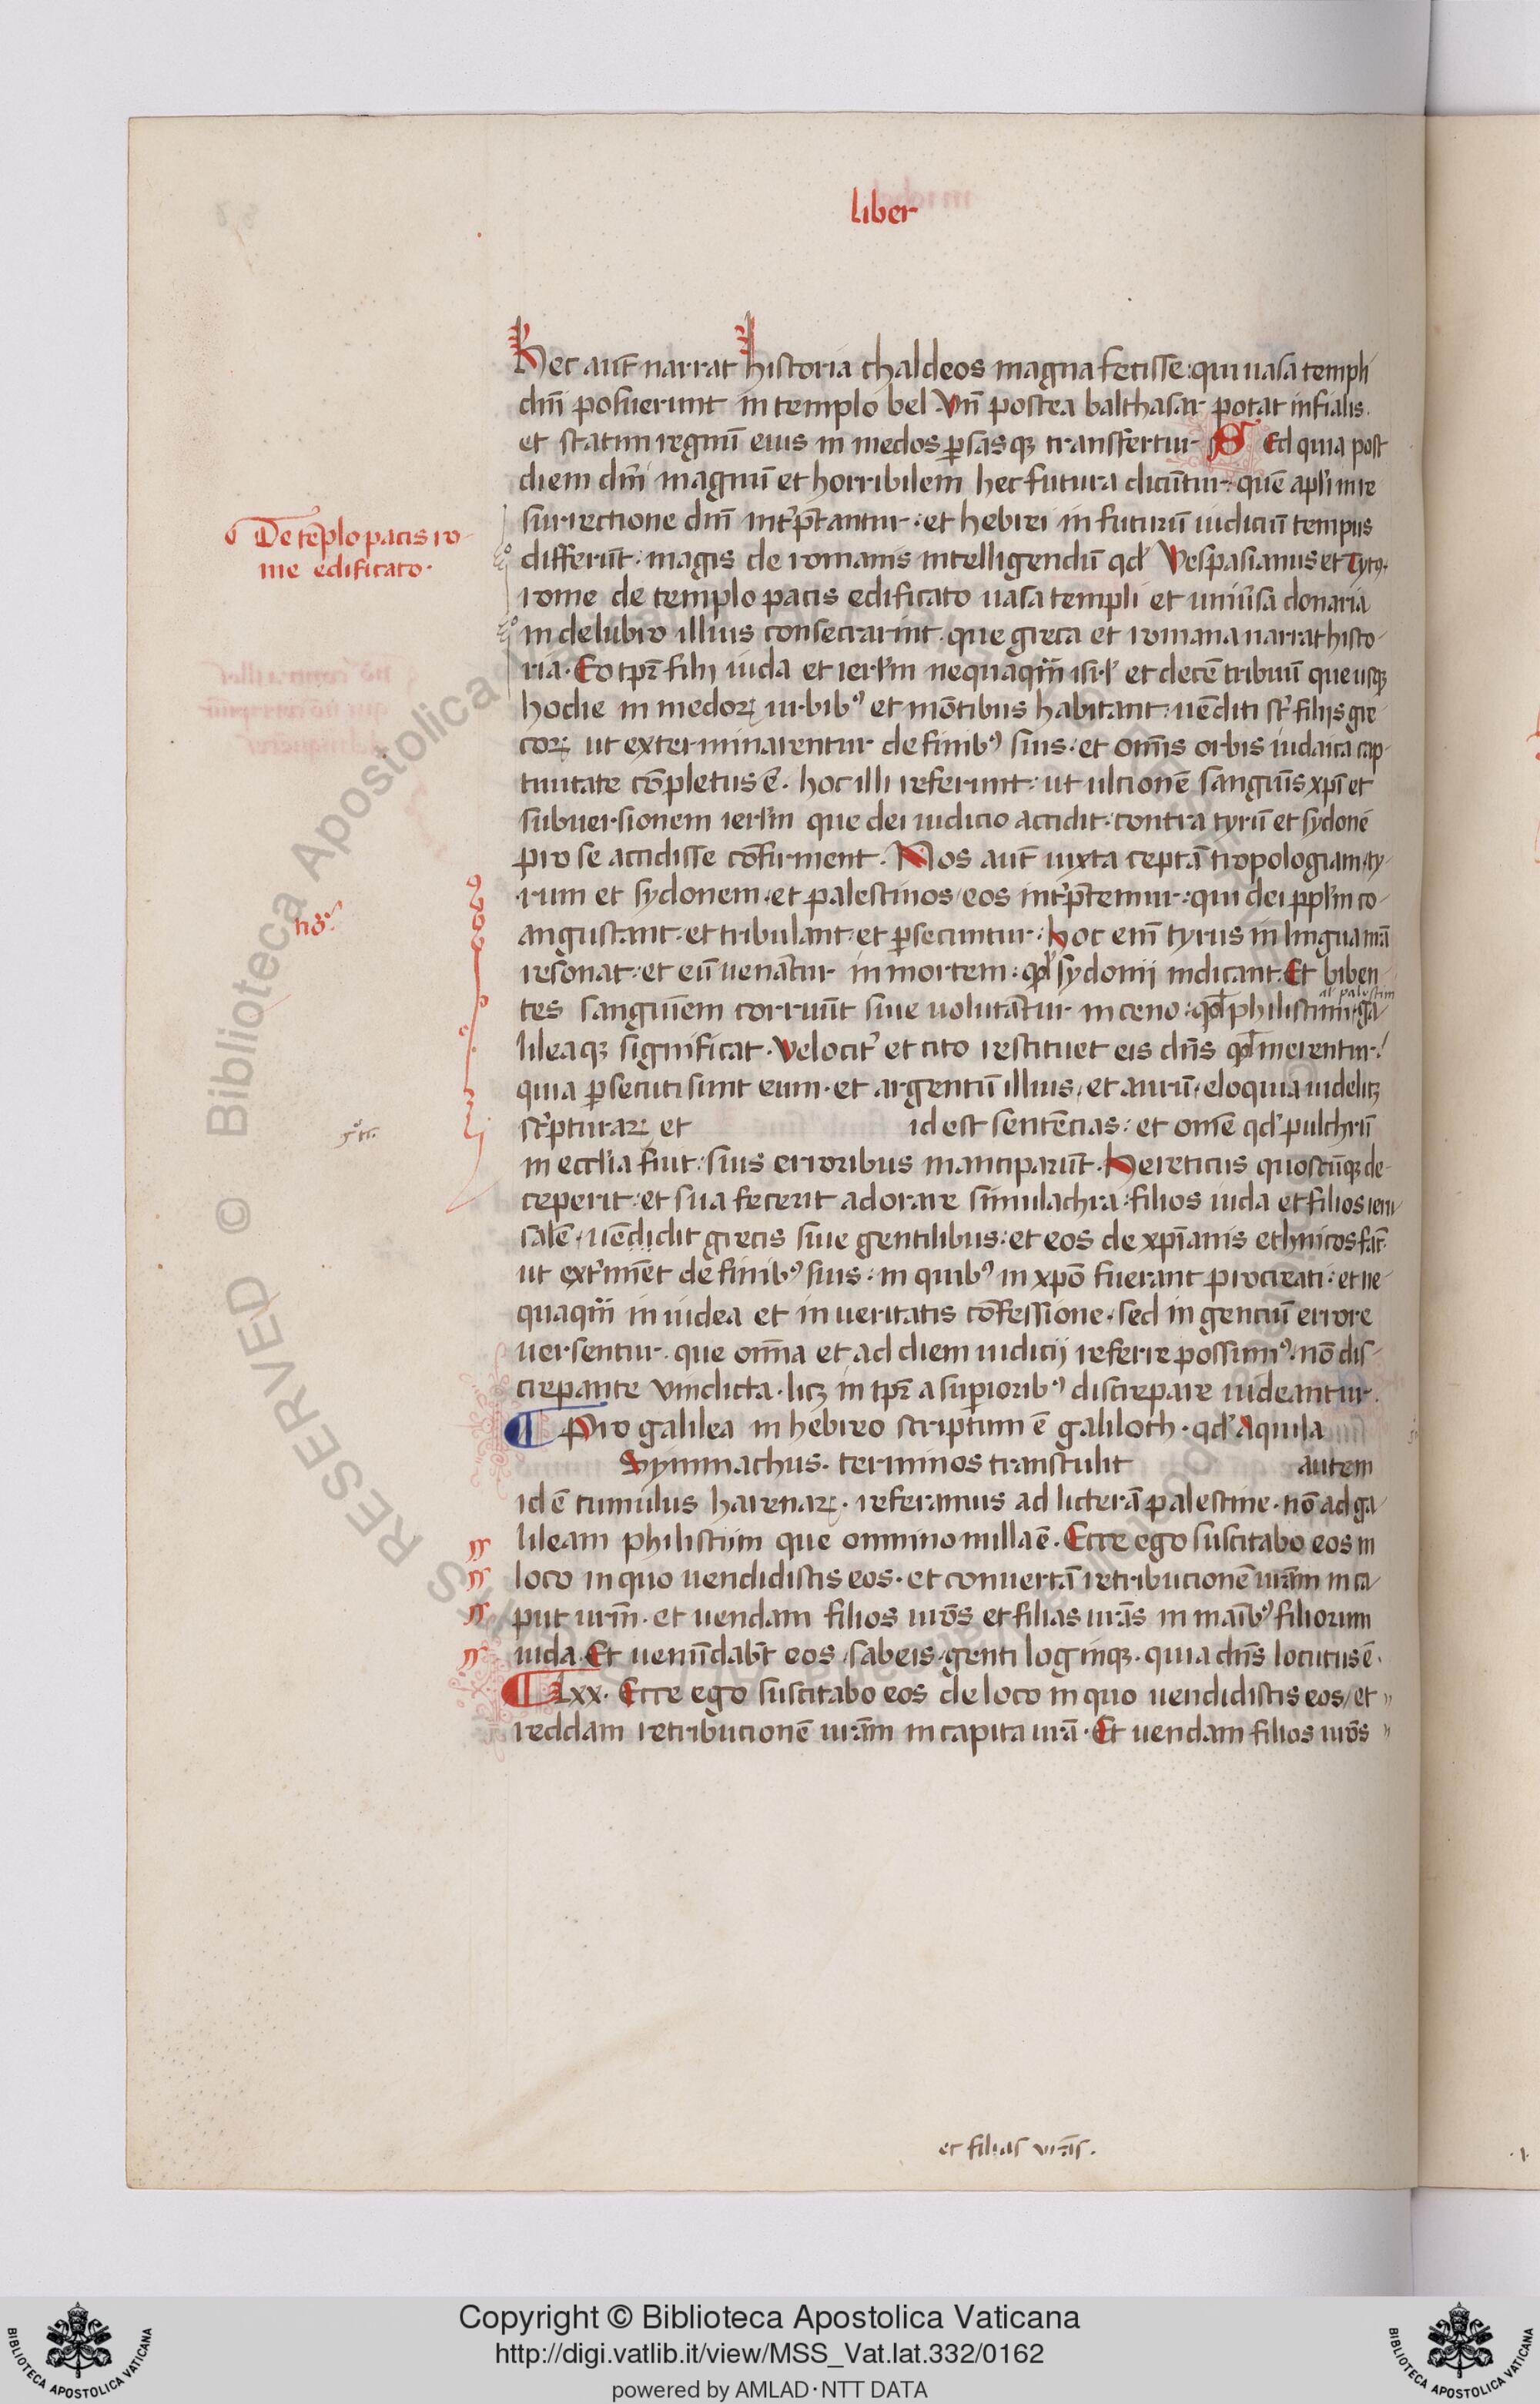 liber
Hec aut̄ narrat historia chaldeos magna fecisse: qui uasa templi
dnī posuerunt in templo bel. Vn̄ postea balthasar potat in fialis.
et statim regnū eius in medos ꝑsasqꝫ transfertur. SEd quia post
diem dnī magnū et horribilem hec futura dicūtur: quē apl'i in re
surrectione dnī int'p̄tantur. et hebrei in futurū iudicii tempus
De tēplo pacis ro
me edificato.
differūt: magis de romanis intelligendū qd' Vespasianus et Tytꝰ.
rome de templo pacis edificato uasa templi et uniu'sa donaria
in delubro illius consecrarint. que greca et romana narrat histo-
ria. Eo tp̄r filij iuda et ierl'm nequaqm̄ isr'l et decē tribuū que usqꝫ
hodie in medoꝝ urbibꝰ et mōtibus habitant: uēditi st̄ filijs gre
coꝝ ut exterminarentur de finibꝰ suis: et omīs orbis iudaica cap-
tiuitate cōpletus ē. hoc illi referunt: ut ultionē sanguīs xp̄i et
subuersionem ierl'm que dei iudicio accidit: contra tyrū et sydonē
pro se accidisse cōfirment. Nos aut̄ iuxta ceptā tropologiam ty-
rum et sydonem. et palestinos eos int'p̄temur: qui dei ppl'm co-
nō.
angustant. et tribulant. et ꝑsecuntur: hoc enī tyrus in lingua nr̄a
resonat: et eū uenātur in mortem: qd' sydonij indicant. Et biben-
al' palestim
tes sanguīem corruūt siue uolutātur in ceno: qd' philistiim ga-
lileaqꝫ significat. Velocit' et cito restituet eis dn̄s qd' merentur:
quia ꝑsecuti sunt eum. et argentū illius, et aurū, eloquia uidelicꝫ
sc'pturaꝝ et id est sentēcias: et om̄e qd' pulchrū
in eccl'ia fuit: suis erroribus manciparūt. Hereticus quoscūqꝫ de-
ceperit: et sua fecerit adorare simulachra: filios iuda et filios ieru
salē, uēdidit grecis siue gentilibus: et eos de xp̄ianis ethnicos fac̄
ut ext'mīet de finibꝰ suis: in quibꝰ in xp̄o fuerant procreati: et ne-
quaqm̄ in iudea et in ueritatis cōfessione. sed in genciū errore
uersentur. que om̄ia et ad diem iudicij referre possimꝰ. nō dis-
crepante vindicta. licꝫ in tp̄r a suꝑioribꝰ discrepare uideantur.
Pro galilea in hebreo scriptum ē galiloth. qd' Aquila
Symmachus. terminos transtulit autem
id ē tumulus harenaꝝ. referamus ad licterā palestine. nō ad ga-
lileam philistiim que omnino nulla ē. Ecce ego suscitabo eos in
loco in quo uendidistis eos. et conuertā retribucionē ur̄am in ca-
put ur̄m. et uendam filios ur̄os et filias ur̄as in manībꝰ filiorum
iuda. Et uenūdabt̄ eos sabeis, genti loginqꝫ. quia dn̄s locutus ē.
Lxx. Ecce ego suscitabo eos de loco in quo uendidistis eos, et
reddam retribucionē ur̄am in capita ur̄a. Et uendam filios ur̄os
et filias ur̄as.
© Biblioteca Apostolica
RESERVED
Copyright © Biblioteca Apostolica Vaticana
http://digi.vatlib.it/view/MSS_Vat.lat.332/0162
powered by AMLAD·NTT DATA
BIBLIOTECA APOSTOLICA VATICANA
BIBLIOTECA APOSTOLICA VATICANA